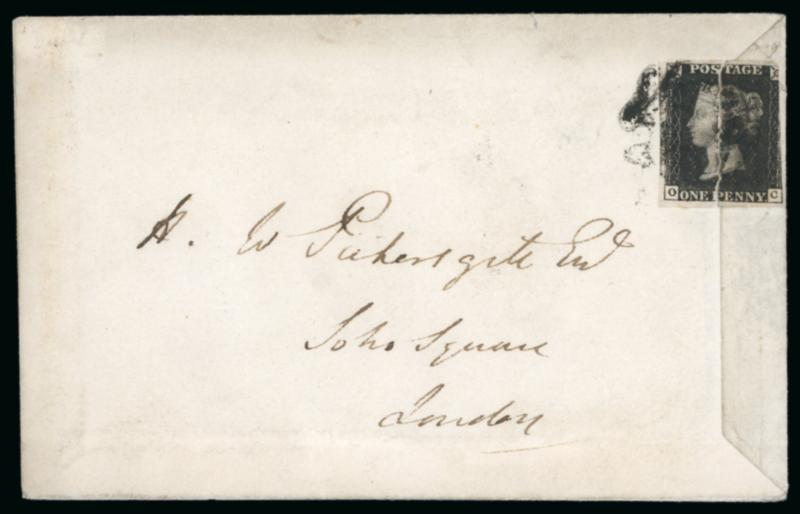 POSTAGE
O ONE PENNY C
H. W Pickersgill Esq
Soho Square
London